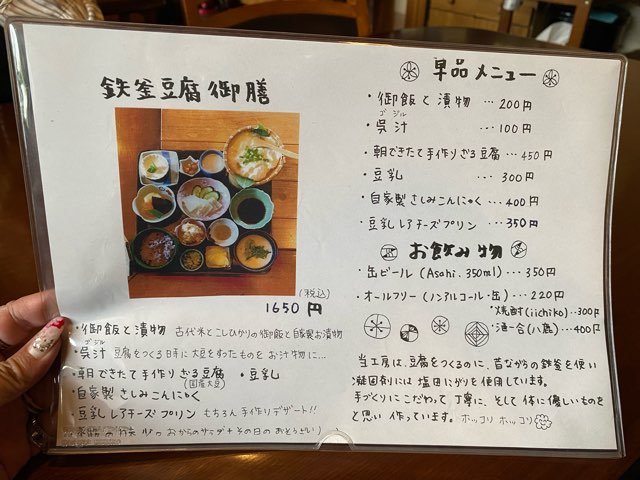 鉄釜豆腐御膳
(税込)
1650円
・御飯と漬物 古代米とこしひかりの御飯と自家製お漬物
ゴジル
・呉汁 豆腐をつくる時に大豆をすったものをお汁物に…
・朝できたて手作りざる豆腐 ・豆乳
(国産大豆)
・自家製さしみこんにゃく
・豆乳レアチーズプリン もちろん手作りデザート!!
おからのサラダ+その日のおそうざい)
単品メニュー
・御飯と漬物 …200円
ゴジル
・呉汁 …100円
・朝できたて手作りざる豆腐…450円
・豆乳 …300円
・自家製さしみこんにゃく…400円
・豆乳レアチーズプリン…350円
お飲み物
・缶ビール(Asahi.350ml)…350円
・オールフリー(ノンアルコール・缶)…220円
・焼酎(iichiko)…300円
・酒一合(八鹿)…400円
当工房は、豆腐をつくるのに、昔ながらの鉄釜を使い
凝固剤には塩田にがりを使用しています。
手づくりにこだわって丁寧に、そして体に優しいものを
と思い作っています。ホッコリホッコリ